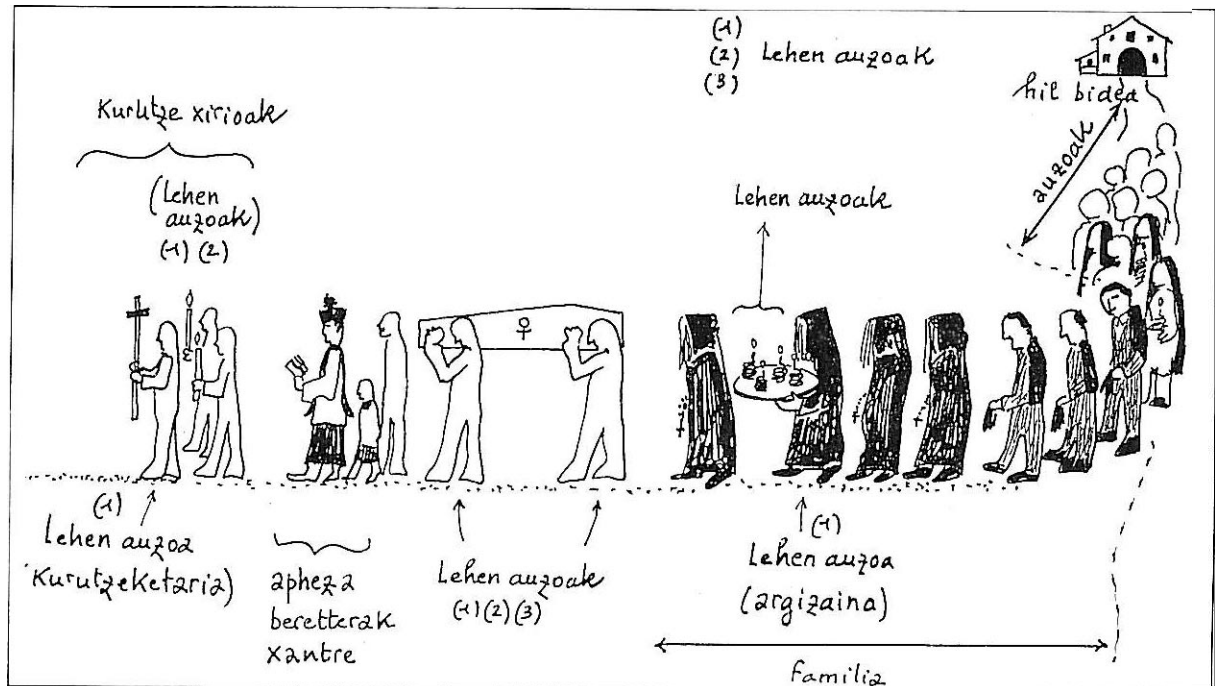 (1)
(2) Lehen auzoak
(3)
hil bidea
auzoak
Kurutze xirioak
(Lehen
auzoak)
(1) (2)
Lehen auzoak
(1)
Lehen auzoa
Kurutzeketaria)
apheza
beretterak
xantre
Lehen auzoak
(1) (2) (3)
(1)
Lehen auzoa
(argizaina)
Familia